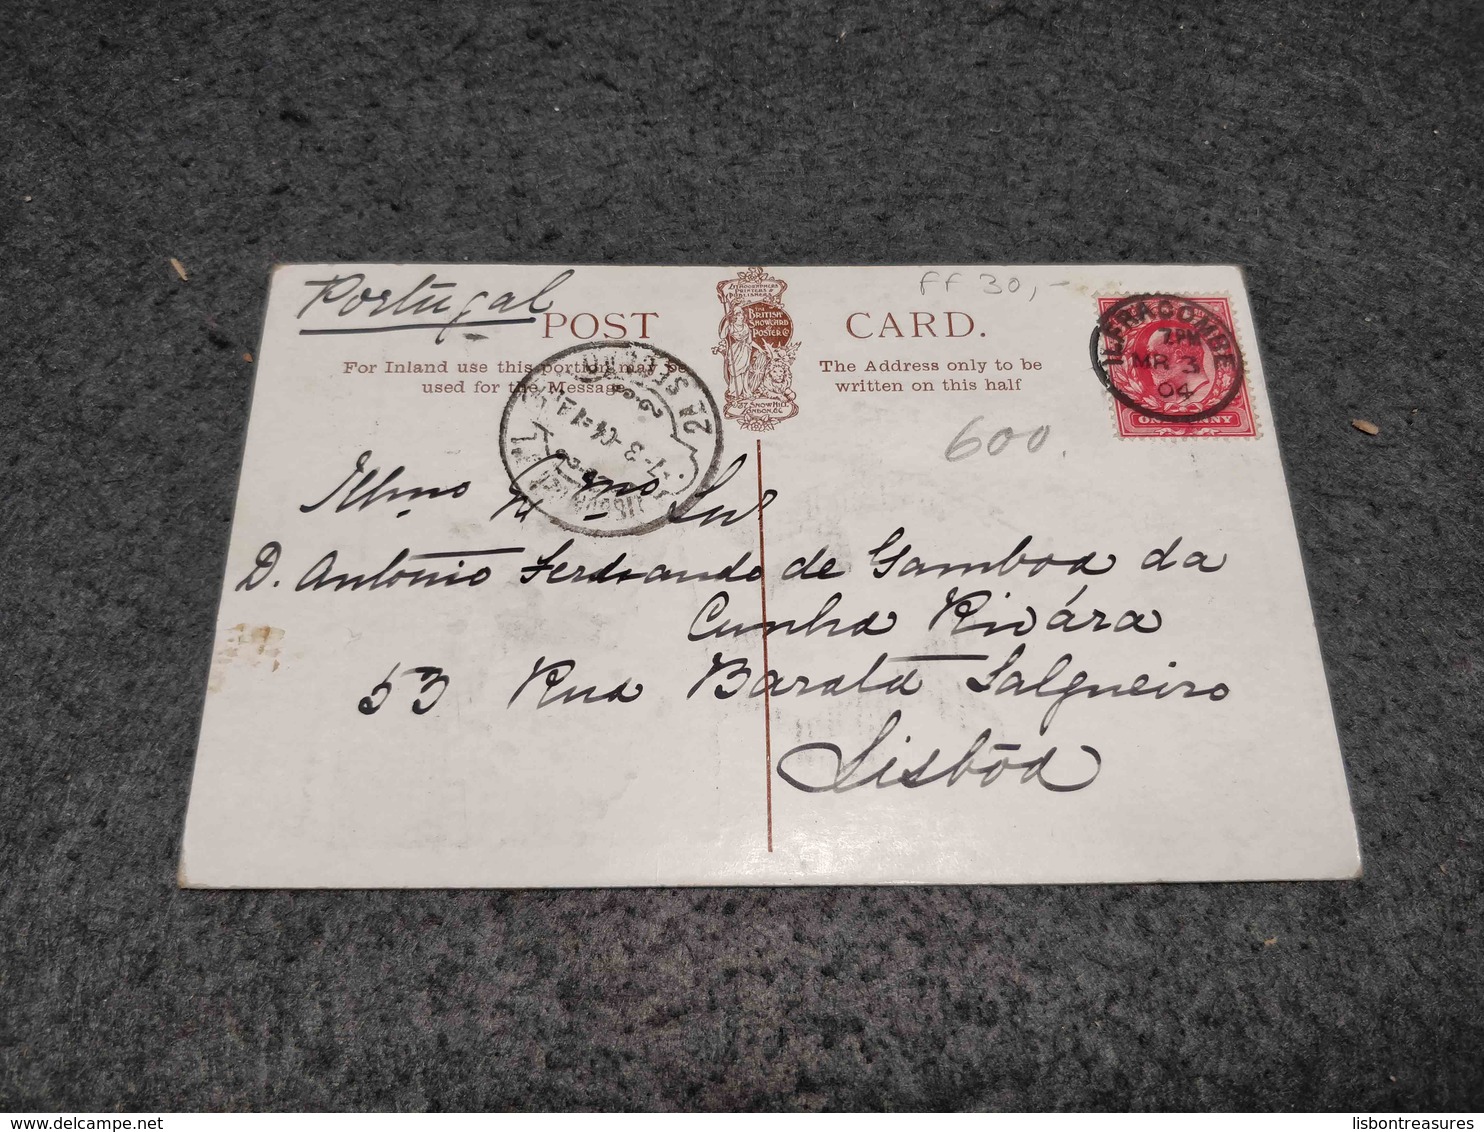 Portugal
FF 30,-
POST CARD.
LITHOGRAPHERS
PRINTERS &
PUBLISHERS
THE
BRITISH
SHOWCARD
POSTER Co
SNOW HILL
LONDON. E.C.
For Inland use this portion may be
used for the Message.
The Address only to be
written on this half
ILFRACOMBE
MR 3
04
ONE PENNY
2A SECÇÃO
7-3-04
600.
Illmo Exmo Snr
D. António Ferdinando de Gamboa da
Cunha Rivára
53 Rua Barata Salgueiro
Lisbôa
lisbontreasures